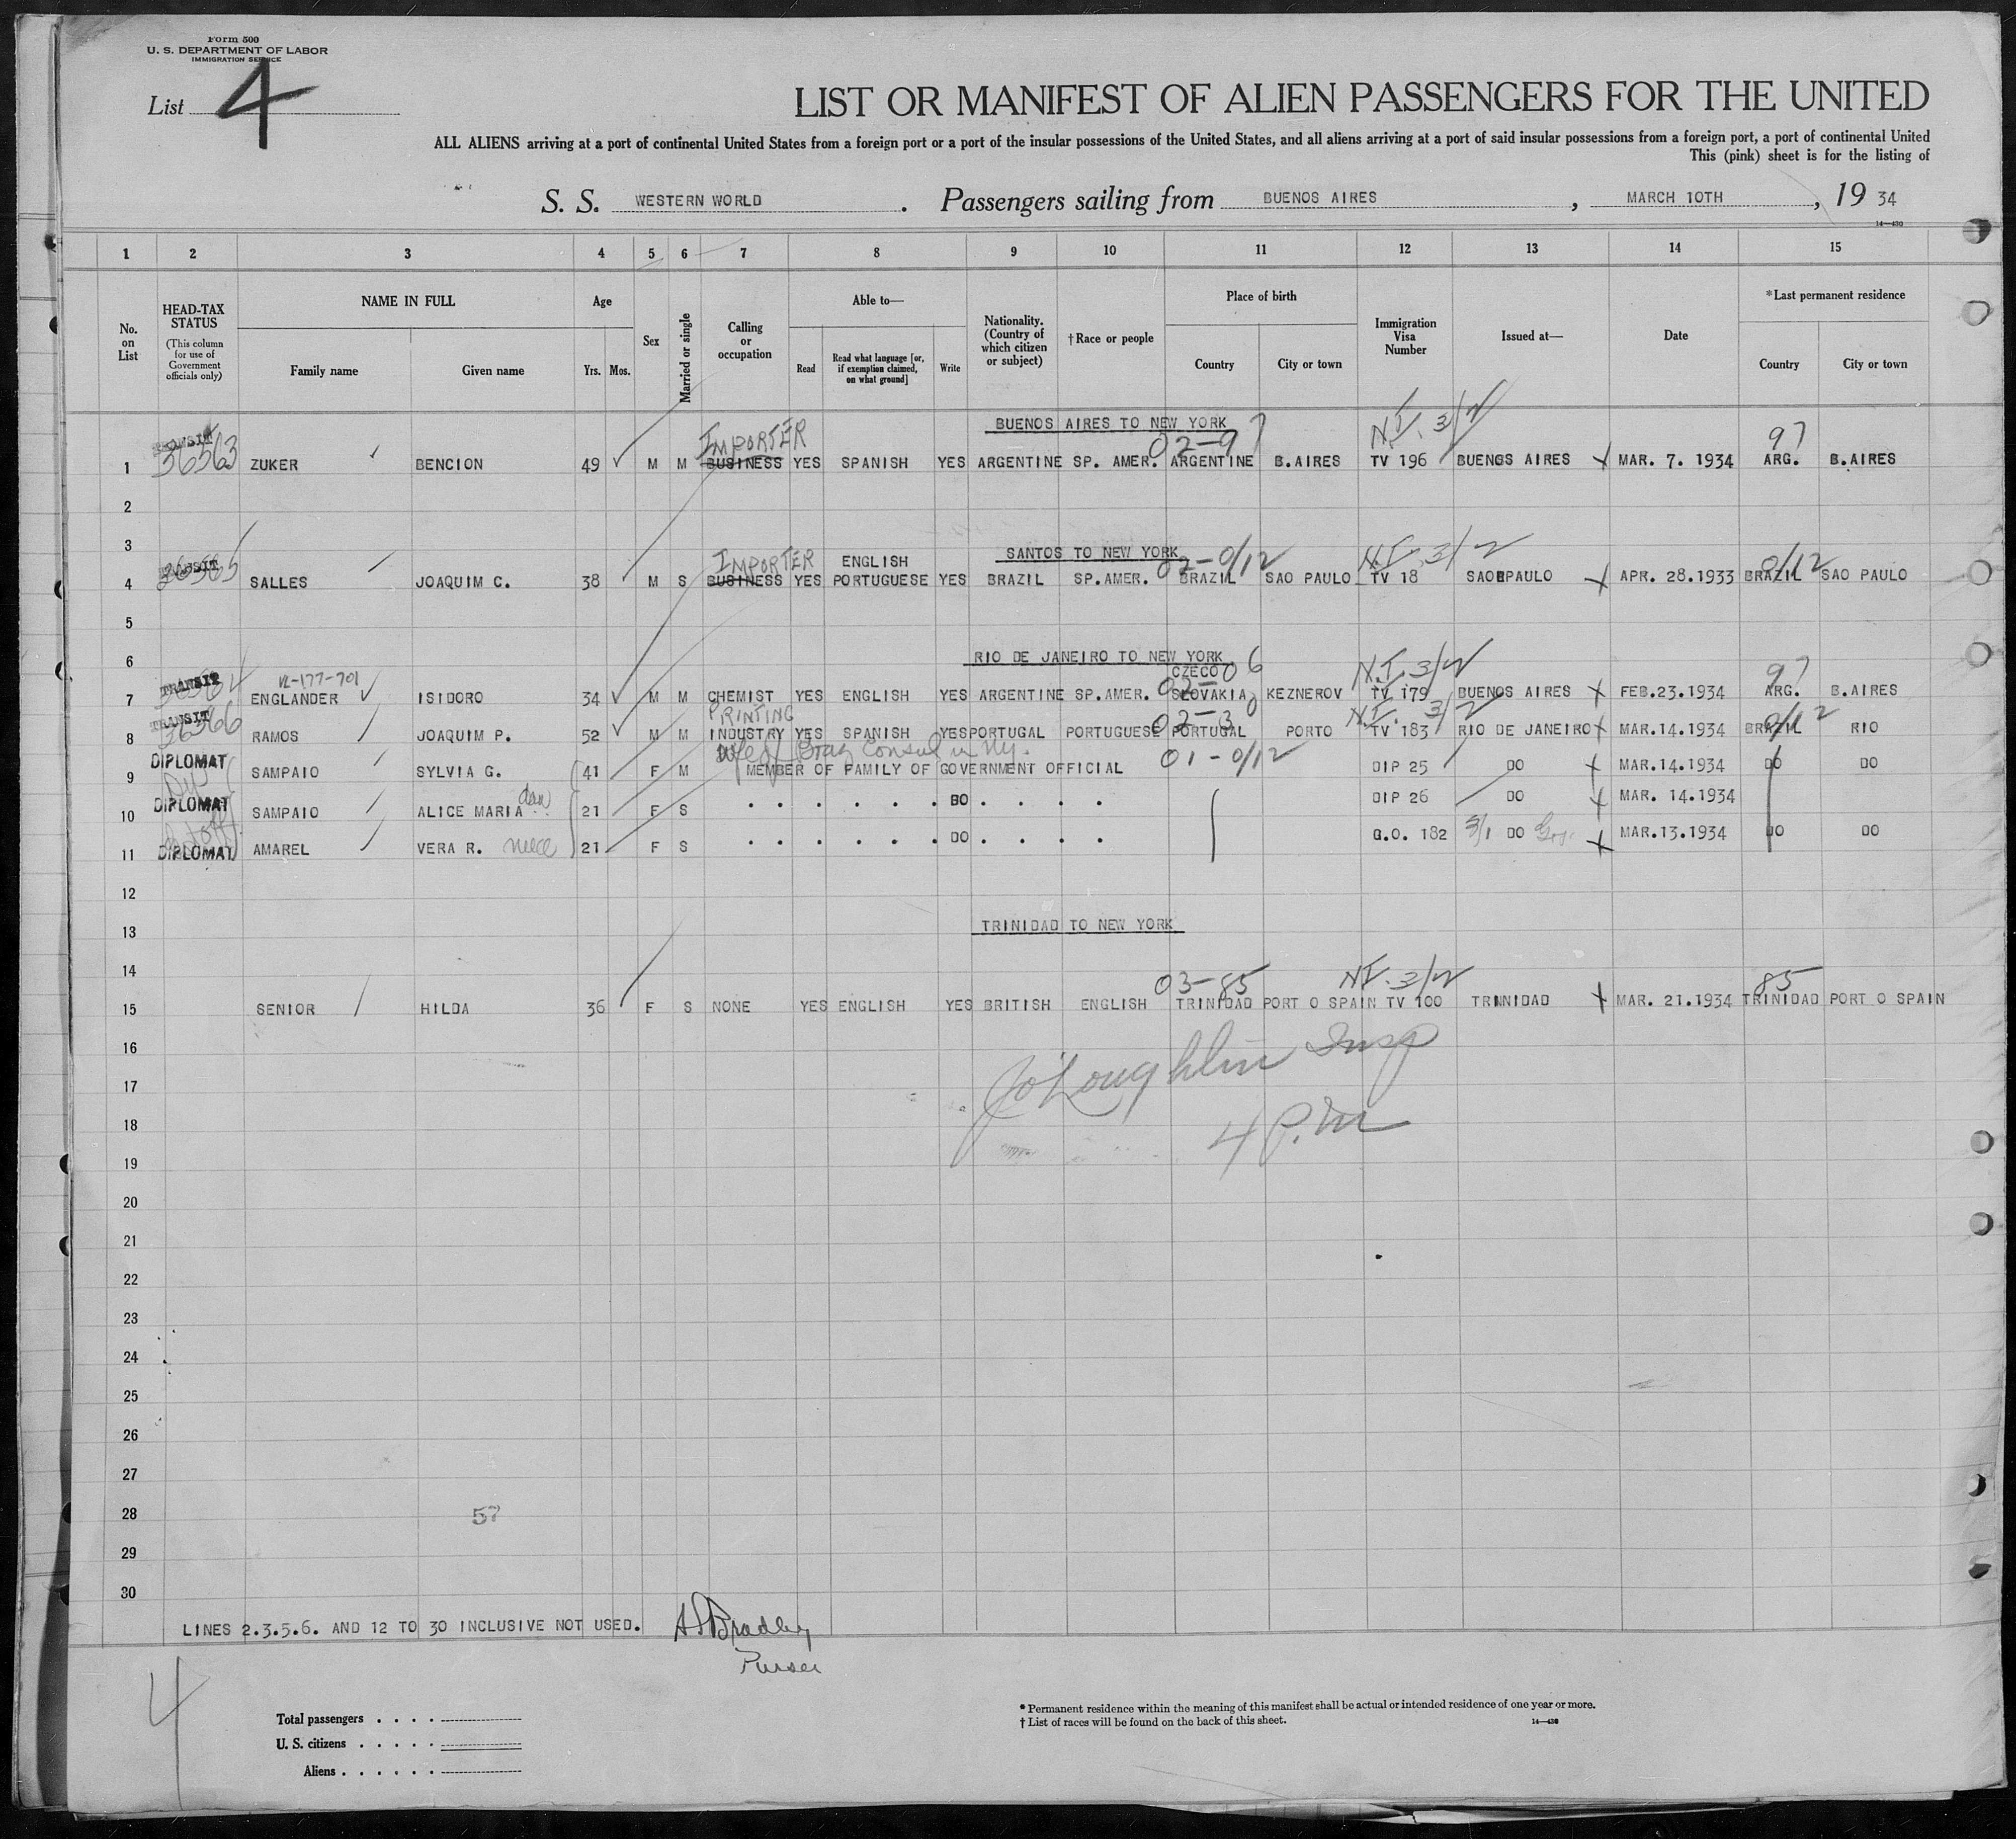 Form 500
U. S. DEPARTMENT OF LABOR
IMMIGRATION SERVICE
List 4
LIST OR MANIFEST OF ALIEN PASSENGERS FOR THE UNITED
ALL ALIENS arriving at a port of continental United States from a foreign port or a port of the insular possessions of the United States, and all aliens arriving at a port of said insular possessions from a foreign port, a port of continental United
This (pink) sheet is for the listing of
S. S. WESTERN WORLD. Passengers sailing from BUENOS AIRES, MARCH 10TH, 19 34
14—430
1 2 3 4 5 6 7 8 9 10 11 12 13 14 15
No. on List
HEAD-TAX STATUS (This column for use of Government officials only)
NAME IN FULL Family name Given name
Age Yrs. Mos.
Sex
Married or single
Calling or occupation
Able to— Read Read what language [or, if exemption claimed, on what ground] Write
Nationality. (Country of which citizen or subject)
†Race or people
Place of birth Country City or town
Immigration Visa Number
Issued at—
Date
*Last permanent residence Country City or town
BUENOS AIRES TO NEW YORK
IMPORTER 02-97 N.I. 3/2 97
1 TRANSIT 36563 ZUKER BENCION 49 M M BUSINESS YES SPANISH YES ARGENTINE SP. AMER. ARGENTINE B.AIRES TV 196 BUENOS AIRES MAR. 7. 1934 ARG. B.AIRES
2
3 SANTOS TO NEW YORK
IMPORTER ENGLISH 02-0/12 N.I. 3/2 0/12
4 TRANSIT 36565 SALLES JOAQUIM C. 38 M S BUSINESS YES PORTUGUESE YES BRAZIL SP.AMER. BRAZIL SAO PAULO TV 18 SAO PAULO APR. 28.1933 BRAZIL SAO PAULO
5
6 RIO DE JANEIRO TO NEW YORK
VL-177-701 CZECO 02-06 N.I. 3/2 97
7 TRANSIT 36564 ENGLANDER ISIDORO 34 M M CHEMIST YES ENGLISH YES ARGENTINE SP.AMER. SLOVAKIA KEZNEROV TV 179 BUENOS AIRES FEB.23.1934 ARG. B.AIRES
PRINTING 02-30 N.I. 3/2 0/12
8 TRANSIT 36566 RAMOS JOAQUIM P. 52 M M INDUSTRY YES SPANISH YES PORTUGAL PORTUGUESE PORTUGAL PORTO TV 183 RIO DE JANEIRO MAR.14.1934 BRAZIL RIO
wife of Braz Consul in Ny. 01-0/12
9 DIPLOMAT SAMPAIO SYLVIA G. 41 F M MEMBER OF FAMILY OF GOVERNMENT OFFICIAL DIP 25 DO MAR.14.1934 DO DO
10 DIPLOMAT SAMPAIO ALICE MARIA dau 21 F S . . . . . . DO . . . . DIP 26 DO MAR. 14.1934
11 DIPLOMAT AMAREL VERA R. niece 21 F S . . . . . . DO . . . . G.O. 182 3/1 DO MAR.13.1934 DO DO
12
13 TRINIDAD TO NEW YORK
14
03-85 N.I. 3/2 85
15 SENIOR HILDA 36 F S NONE YES ENGLISH YES BRITISH ENGLISH TRINIDAD PORT O SPAIN TV 100 TRINIDAD MAR. 21.1934 TRINIDAD PORT O SPAIN
16
J O'Loughlin Insp
17
18
4 P.M
19
20
21
22
23
24
25
26
27
28
57
29
30
LINES 2.3.5.6. AND 12 TO 30 INCLUSIVE NOT USED. Bradley
Purser
4
Total passengers . . . .
U. S. citizens . . . . .
Aliens . . . . . .
* Permanent residence within the meaning of this manifest shall be actual or intended residence of one year or more.
† List of races will be found on the back of this sheet.
14—430